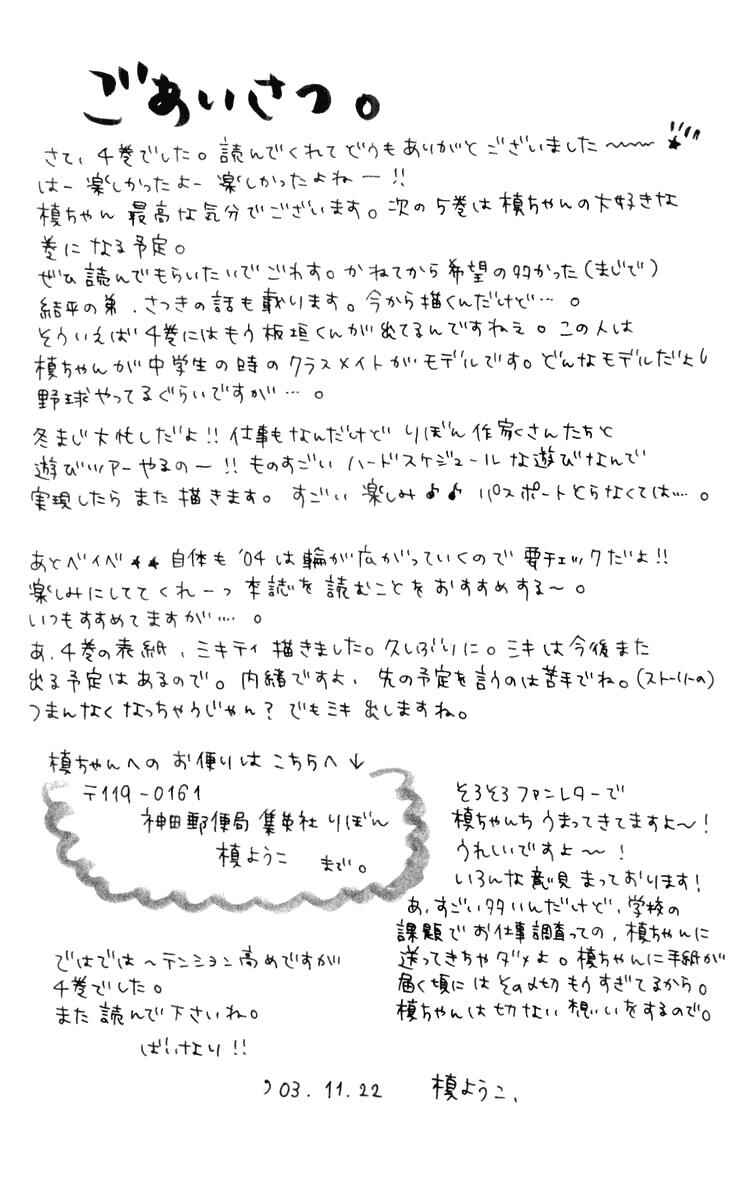 ごあいさつ。
さて、4巻でした。読んでくれてどうもありがとございました〜〜
はー楽しかったよー楽しかったよねー!!
槙ちゃん最高な気分でございます。次の5巻は槙ちゃんの大好きな
巻になる予定。
ぜひ読んでもらいたいでごわす。かねてから希望の多かった(まじで)
結平の弟、さつきの話も載ります。今から描くんだけど…。
そういえば4巻にはもう板垣くんが出てるんですねえ。この人は
槙ちゃんが中学生の時のクラスメイトがモデルです。どんなモデルだよし
野球やってるぐらいですが…。
冬まじ大忙しだよ!!仕事もなんだけど りぼん作家くさんたちと
遊びツアーやるのー!!ものすごい ハードスケジュールな遊びなんで
実現したらまた描きます。すごい楽しみ♪♪ パスポートとらなくては…。
あとベイベ★★自体も'04は輪が広がっていくので要チェックだよ!!
楽しみにしててくれーっ 本誌を読むことをおすすめする〜。
いつもすすめてますが…。
あ、4巻の表紙、ミキティ描きました。久しぶりに。ミキは今後また
出る予定はあるので。内緒ですよ、先の予定を言うのは苦手でね。(ストーリーの)
つまんなくなっちゃうじゃん?でもミキ出しますね。
槙ちゃんへのお便りはこちらへ↓
〒119-0161
神田郵便局 集英社 りぼん
槙ようこ まで。
そろそろファンレターで
槙ちゃんちうまってきてますよ〜!
うれいいですよ〜!
いろんな意見まっております!
あ、すごい多いんだけど、学校の
課題でお仕事調査っての、槙ちゃんに
送ってきちゃダメよ。槙ちゃんに手紙が
届く頃にはその〆切もうすぎてるから。
槙ちゃんは切ない想いをするので。
ではでは〜テンション高めですが
4巻でした。
また読んで下さいね。
ばいなり!!
'03.11.22 槙ようこ、